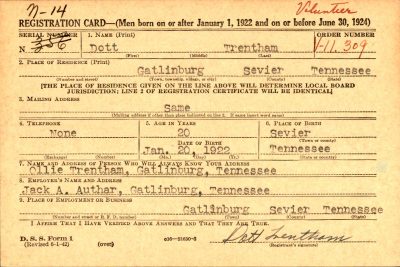 N-14
Volunteer
REGISTRATION CARD—(Men born on or after January 1, 1922 and on or before June 30, 1924)
SERIAL NUMBER
1. NAME (Print)
ORDER NUMBER
N- 356
Dott Trentham
V-11.309
(First) (Middle) (Last)
2. PLACE OF RESIDENCE (Print)
Gatlinburg Sevier Tennessee
(Number and street) (Town, township, village, or city) (County) (State)
[THE PLACE OF RESIDENCE GIVEN ON THE LINE ABOVE WILL DETERMINE LOCAL BOARD
JURISDICTION; LINE 2 OF REGISTRATION CERTIFICATE WILL BE IDENTICAL]
3. MAILING ADDRESS
Same
(Mailing address if other than place indicated on line 2. If same insert word same)
4. TELEPHONE
5. AGE IN YEARS
6. PLACE OF BIRTH
None
20
Sevier
DATE OF BIRTH
(Town or county)
Jan. 20, 1922
Tennessee
(Exchange) (Number)
(Mo.) (Day) (Yr.)
(State or country)
7. NAME AND ADDRESS OF PERSON WHO WILL ALWAYS KNOW YOUR ADDRESS
Ollie Trentham, Gatlinburg, Tennessee
8. EMPLOYER'S NAME AND ADDRESS
Jack A. Authar, Gatlinburg, Tennessee
9. PLACE OF EMPLOYMENT OR BUSINESS
Gatlinburg Sevier Tennessee
(Number and street or R. F. D. number) (Town) (County) (State)
I AFFIRM THAT I HAVE VERIFIED ABOVE ANSWERS AND THAT THEY ARE TRUE.
D. S. S. Form 1
(Revised 6-1-42) (over)
Dott Trentham
(Registrant's signature)